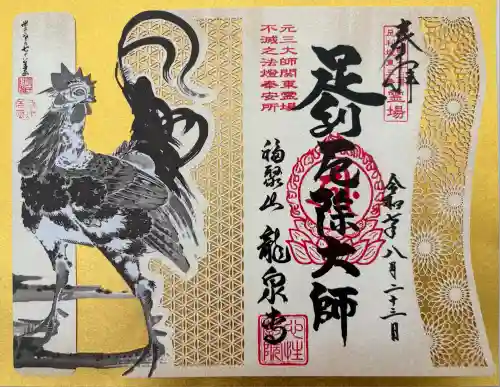 奉拝
足利厄除大師
元三大師関東霊場
不滅之法燈奉安所
福聚山 龍泉寺
八月二十三日